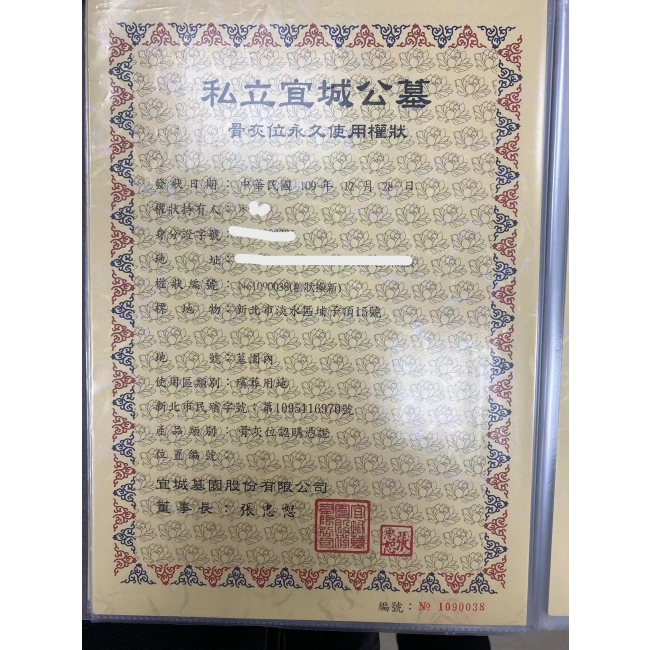 私立宜城公墓
骨灰位永久使用權狀
發狀日期：中華民國 109 年 12 月 28 日
權狀持有人：
身分證字號：
地 址：
權狀編號：No1090038(舊狀換新)
標 地 物：新北市淡水區埔子頂15號
地 號：墓園內
使用區類別：殯葬用地
新北市民殯字號：第1095416970號
產品類別：骨灰位認購憑證
位置編號：
宜城墓園股份有限公司
董事長：張忠恕
編號：№ 1090038